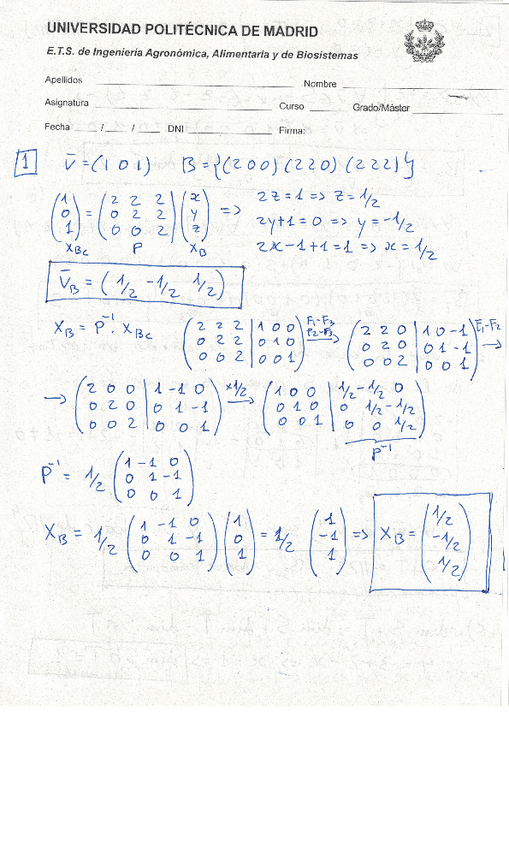 UNIVERSIDAD POLITÉCNICA DE MADRID
E.T.S. de Ingeniería Agronómica, Alimentaria y de Biosistemas
Apellidos Nombre
Asignatura Curso Grado/Máster
Fecha / / DNI Firma:
1 V̄=(1 0 1) B={(2 0 0) (2 2 0) (2 2 2)}
(1 0 1) = (2 2 2 / 0 2 2 / 0 0 2) (x y z) => 2z=1 => z=1/2
2y+1=0 => y=-1/2
2x-1+1=1 => x=1/2
X_Bc P X_B
V̄_B = (1/2 -1/2 1/2)
X_B = P⁻¹ · X_Bc (2 2 2 | 1 0 0 / 0 2 2 | 0 1 0 / 0 0 2 | 0 0 1) F1-F3 F2-F3 → (2 2 0 | 1 0 -1 / 0 2 0 | 0 1 -1 / 0 0 2 | 0 0 1) F1-F2 →
→ (2 0 0 | 1 -1 0 / 0 2 0 | 0 1 -1 / 0 0 2 | 0 0 1) x1/2 → (1 0 0 | 1/2 -1/2 0 / 0 1 0 | 0 1/2 -1/2 / 0 0 1 | 0 0 1/2)
P⁻¹
P⁻¹ = 1/2 (1 -1 0 / 0 1 -1 / 0 0 1)
X_B = 1/2 (1 -1 0 / 0 1 -1 / 0 0 1) (1 0 1) = 1/2 (1 -1 1) => X_B = (1/2 -1/2 1/2)